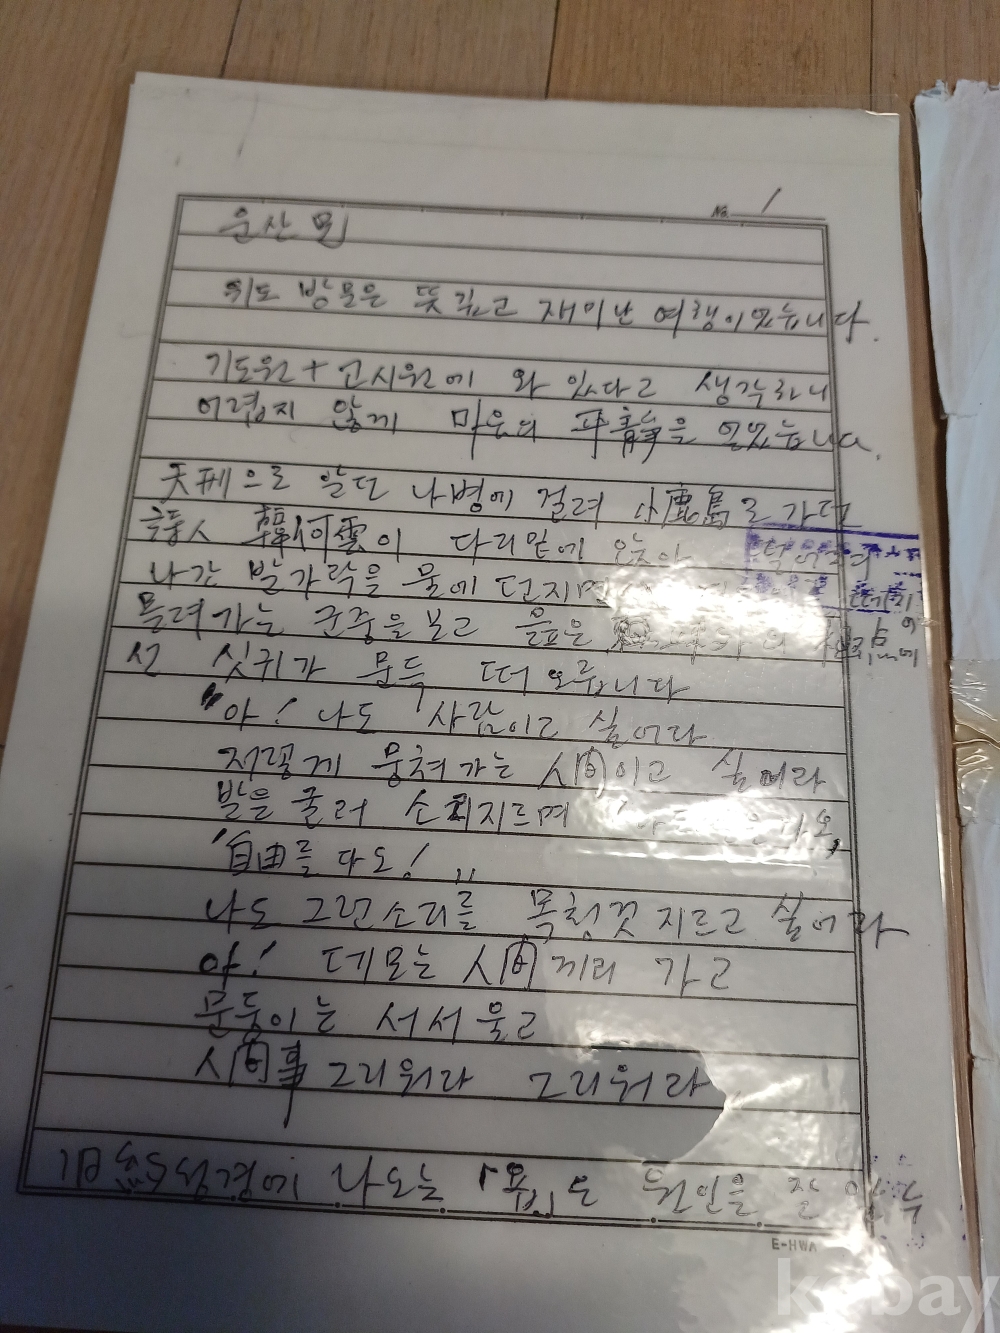 No. 1
운산 님
위도 방문은 뜻깊고 재미난 여행이었습니다.
기도원+고시원에 와 있다고 생각하니
어렵지 않게 마음의 平靜을 얻었습니다.
天刑으로 알던 나병에 걸려 小鹿島로 가던
詩人 韓何雲이 다리밑에 앉아
나간 발가락을 물에 던지면
몰려가는 군중을 보고 읊은
선 싯귀가 문득 떠오릅니다
"아! 나도 사람이고 싶어라
저렇게 뭉쳐가는 人間이고 싶어라
발을 굴러 소리지르며
'自由를 다오!"
나도 그런소리를 목청껏 지르고 싶어라
아! 데모는 人間끼리 가고
문둥이는 서서 울고
人間事 그리워라 그리워라
성경에 나오는 「욥」도 원인을 잘
E-HWA
kobay